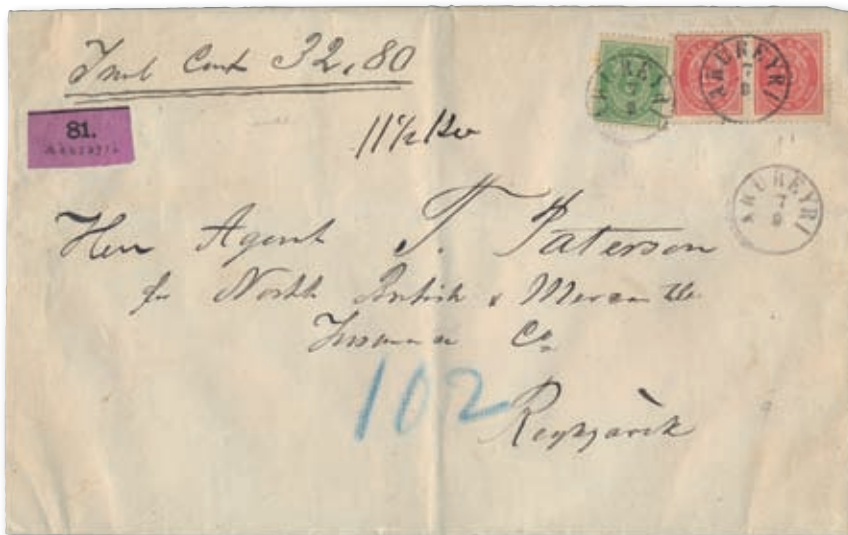 Indl Cont 32,80
81.
Akureyri
11½ Kv
AKUREYRI
7
9
AKUREYRI
7
9
AKUREYRI
7
9
Herr Agent T. Paterson
for North British & Mercantile
Insurance Co
102
Reykjavik